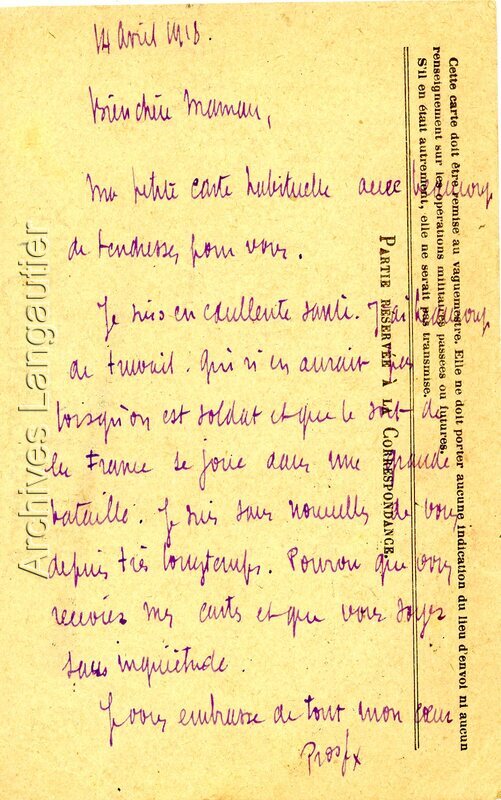 14 Avril 1918.
Bien chère Maman,
Ma petite carte habituelle avec beaucoup
de tendresses pour vous.
Je suis en excellente santé. J'ai beaucoup
de travail. Qui n'en aurait pas
lorsqu'on est soldat et que le sort de
la France se joue dans une grande
bataille. Je suis sans nouvelles de vous
depuis très longtemps. Pourvu que vous
receviez mes cartes et que vous soyez
sans inquiétude.
Je vous embrasse de tout mon cœur
Cette carte doit être remise au vaguemestre. Elle ne doit porter aucune indication du lieu d'envoi ni aucun
renseignement sur les opérations militaires passées ou futures.
S'il en était autrement, elle ne serait pas transmise.
PARTIE RÉSERVÉE À LA CORRESPONDANCE.
Archives Langautier